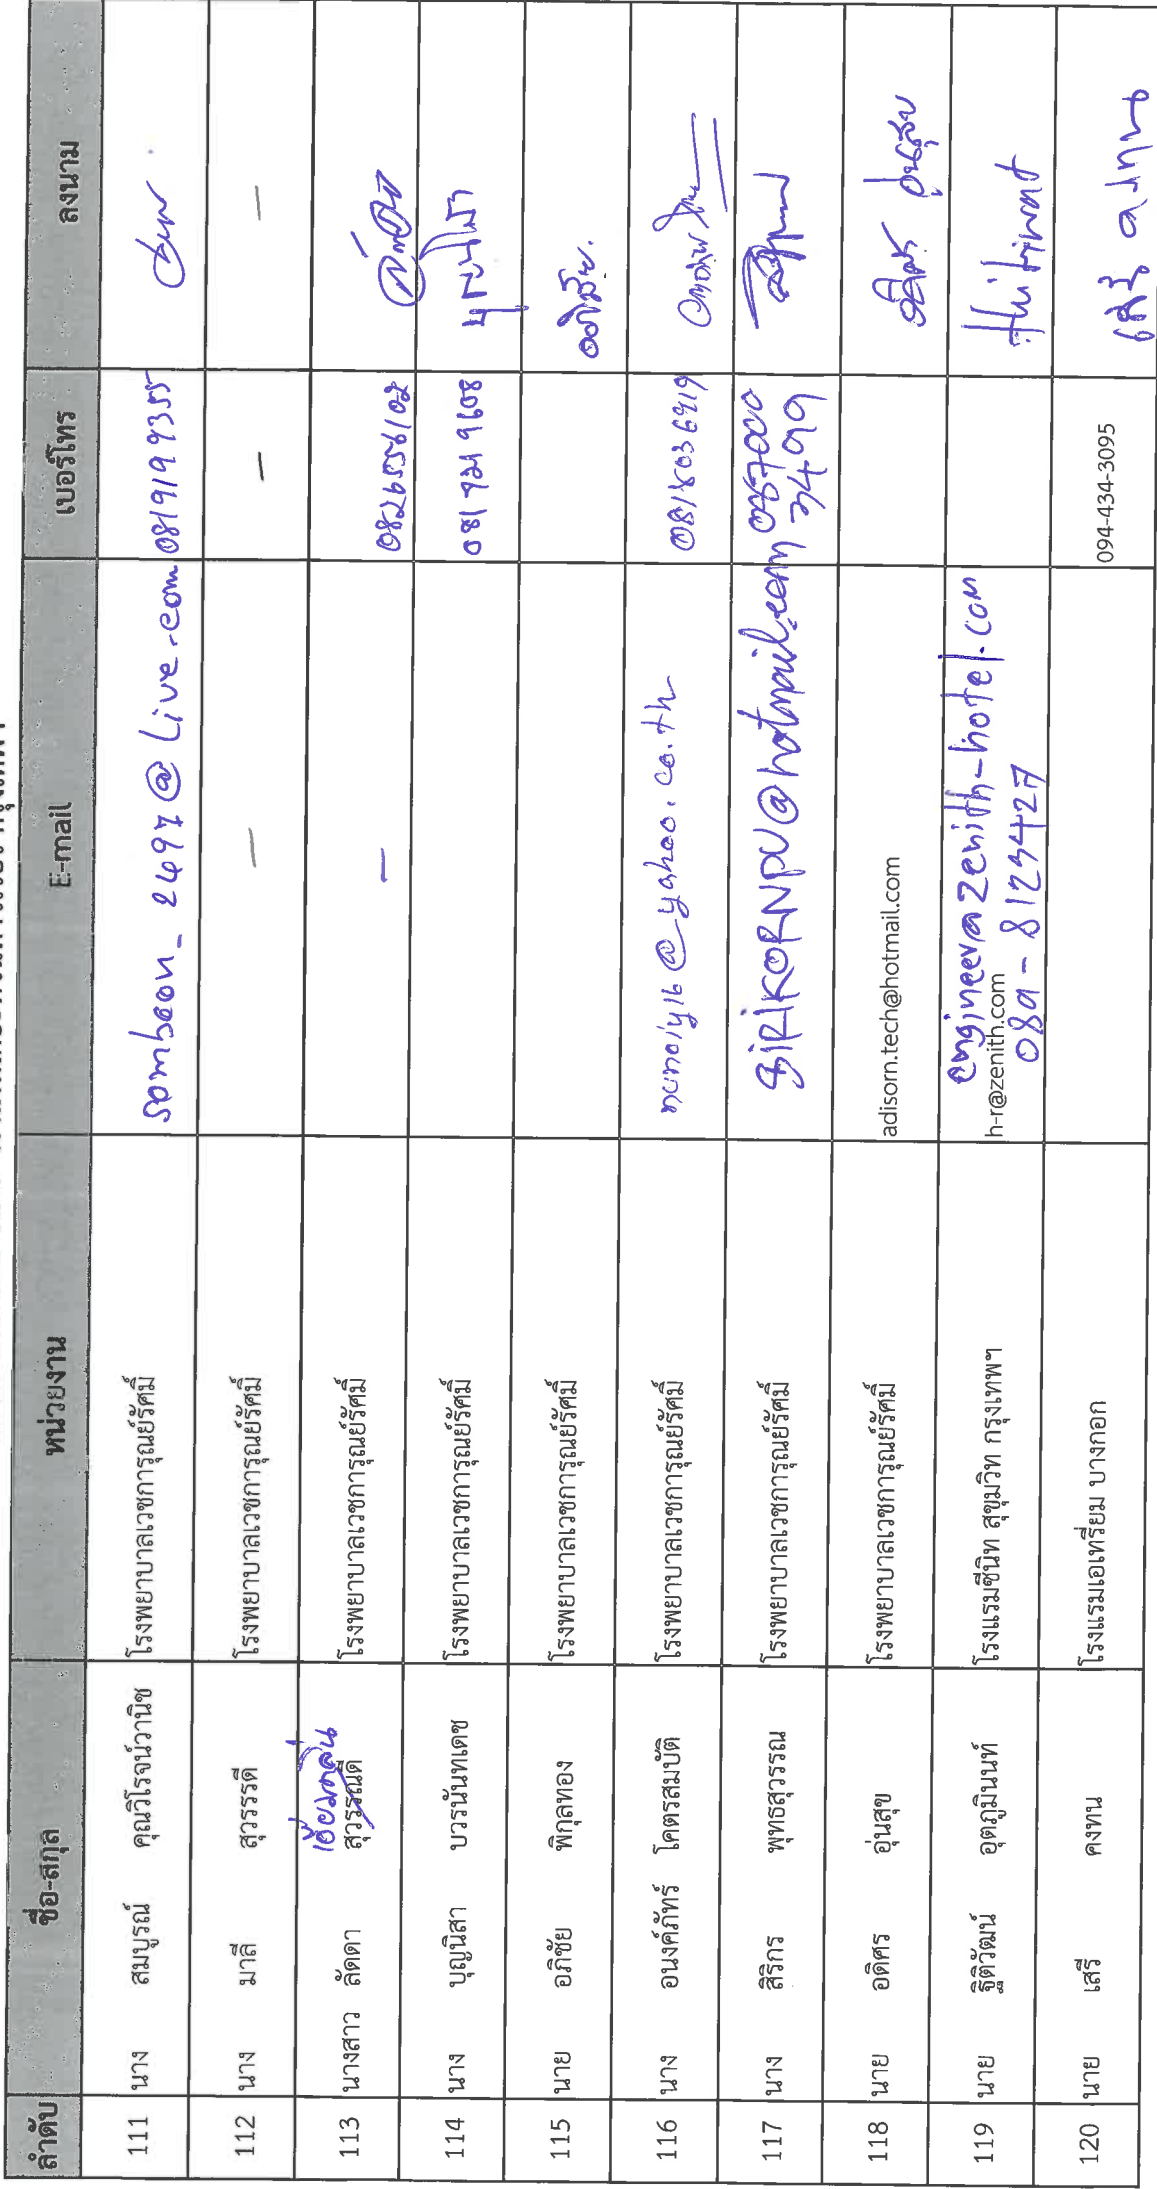 ลำดับ ชื่อ-สกุล หน่วยงาน E-mail เบอร์โทร ลงนาม
111 นาง สมบูรณ์ คุณวิโรจน์วานิช โรงพยาบาลเวชการุณย์รัศมิ์ somboon_2497@Live.com
112 นาง มาลี สุวรรรดี โรงพยาบาลเวชการุณย์รัศมิ์ - - -
เอี่ยมกลิ่น
113 นางสาว ลัดดา สุวรรณดี โรงพยาบาลเวชการุณย์รัศมิ์ - 0826556102
114 นาง บุญนิสา บวรนันทเดช โรงพยาบาลเวชการุณย์รัศมิ์
115 นาย อภิชัย พิกุลทอง โรงพยาบาลเวชการุณย์รัศมิ์ อภิชัย.
116 นาง อนงค์ภัทร์ โคตรสมบัติ โรงพยาบาลเวชการุณย์รัศมิ์
117 นาง สิริกร พุทธสุวรรณ โรงพยาบาลเวชการุณย์รัศมิ์ SiRiKORNPU@hotmail.com 087000
3499
118 นาย อดิศร อุ่นสุข โรงพยาบาลเวชการุณย์รัศมิ์ adisorn.tech@hotmail.com อดิศร อุ่นสุข
engineer@zenith-hotel.com
119 นาย ฐิติวัฒน์ อุตภูมินนท์ โรงแรมซีนิท สุขุมวิท กรุงเทพฯ h-r@zenith.com
089-8123427
120 นาย เสรี คงทน โรงแรมเอเทรียม บางกอก 094-434-3095 เสรี คงทน